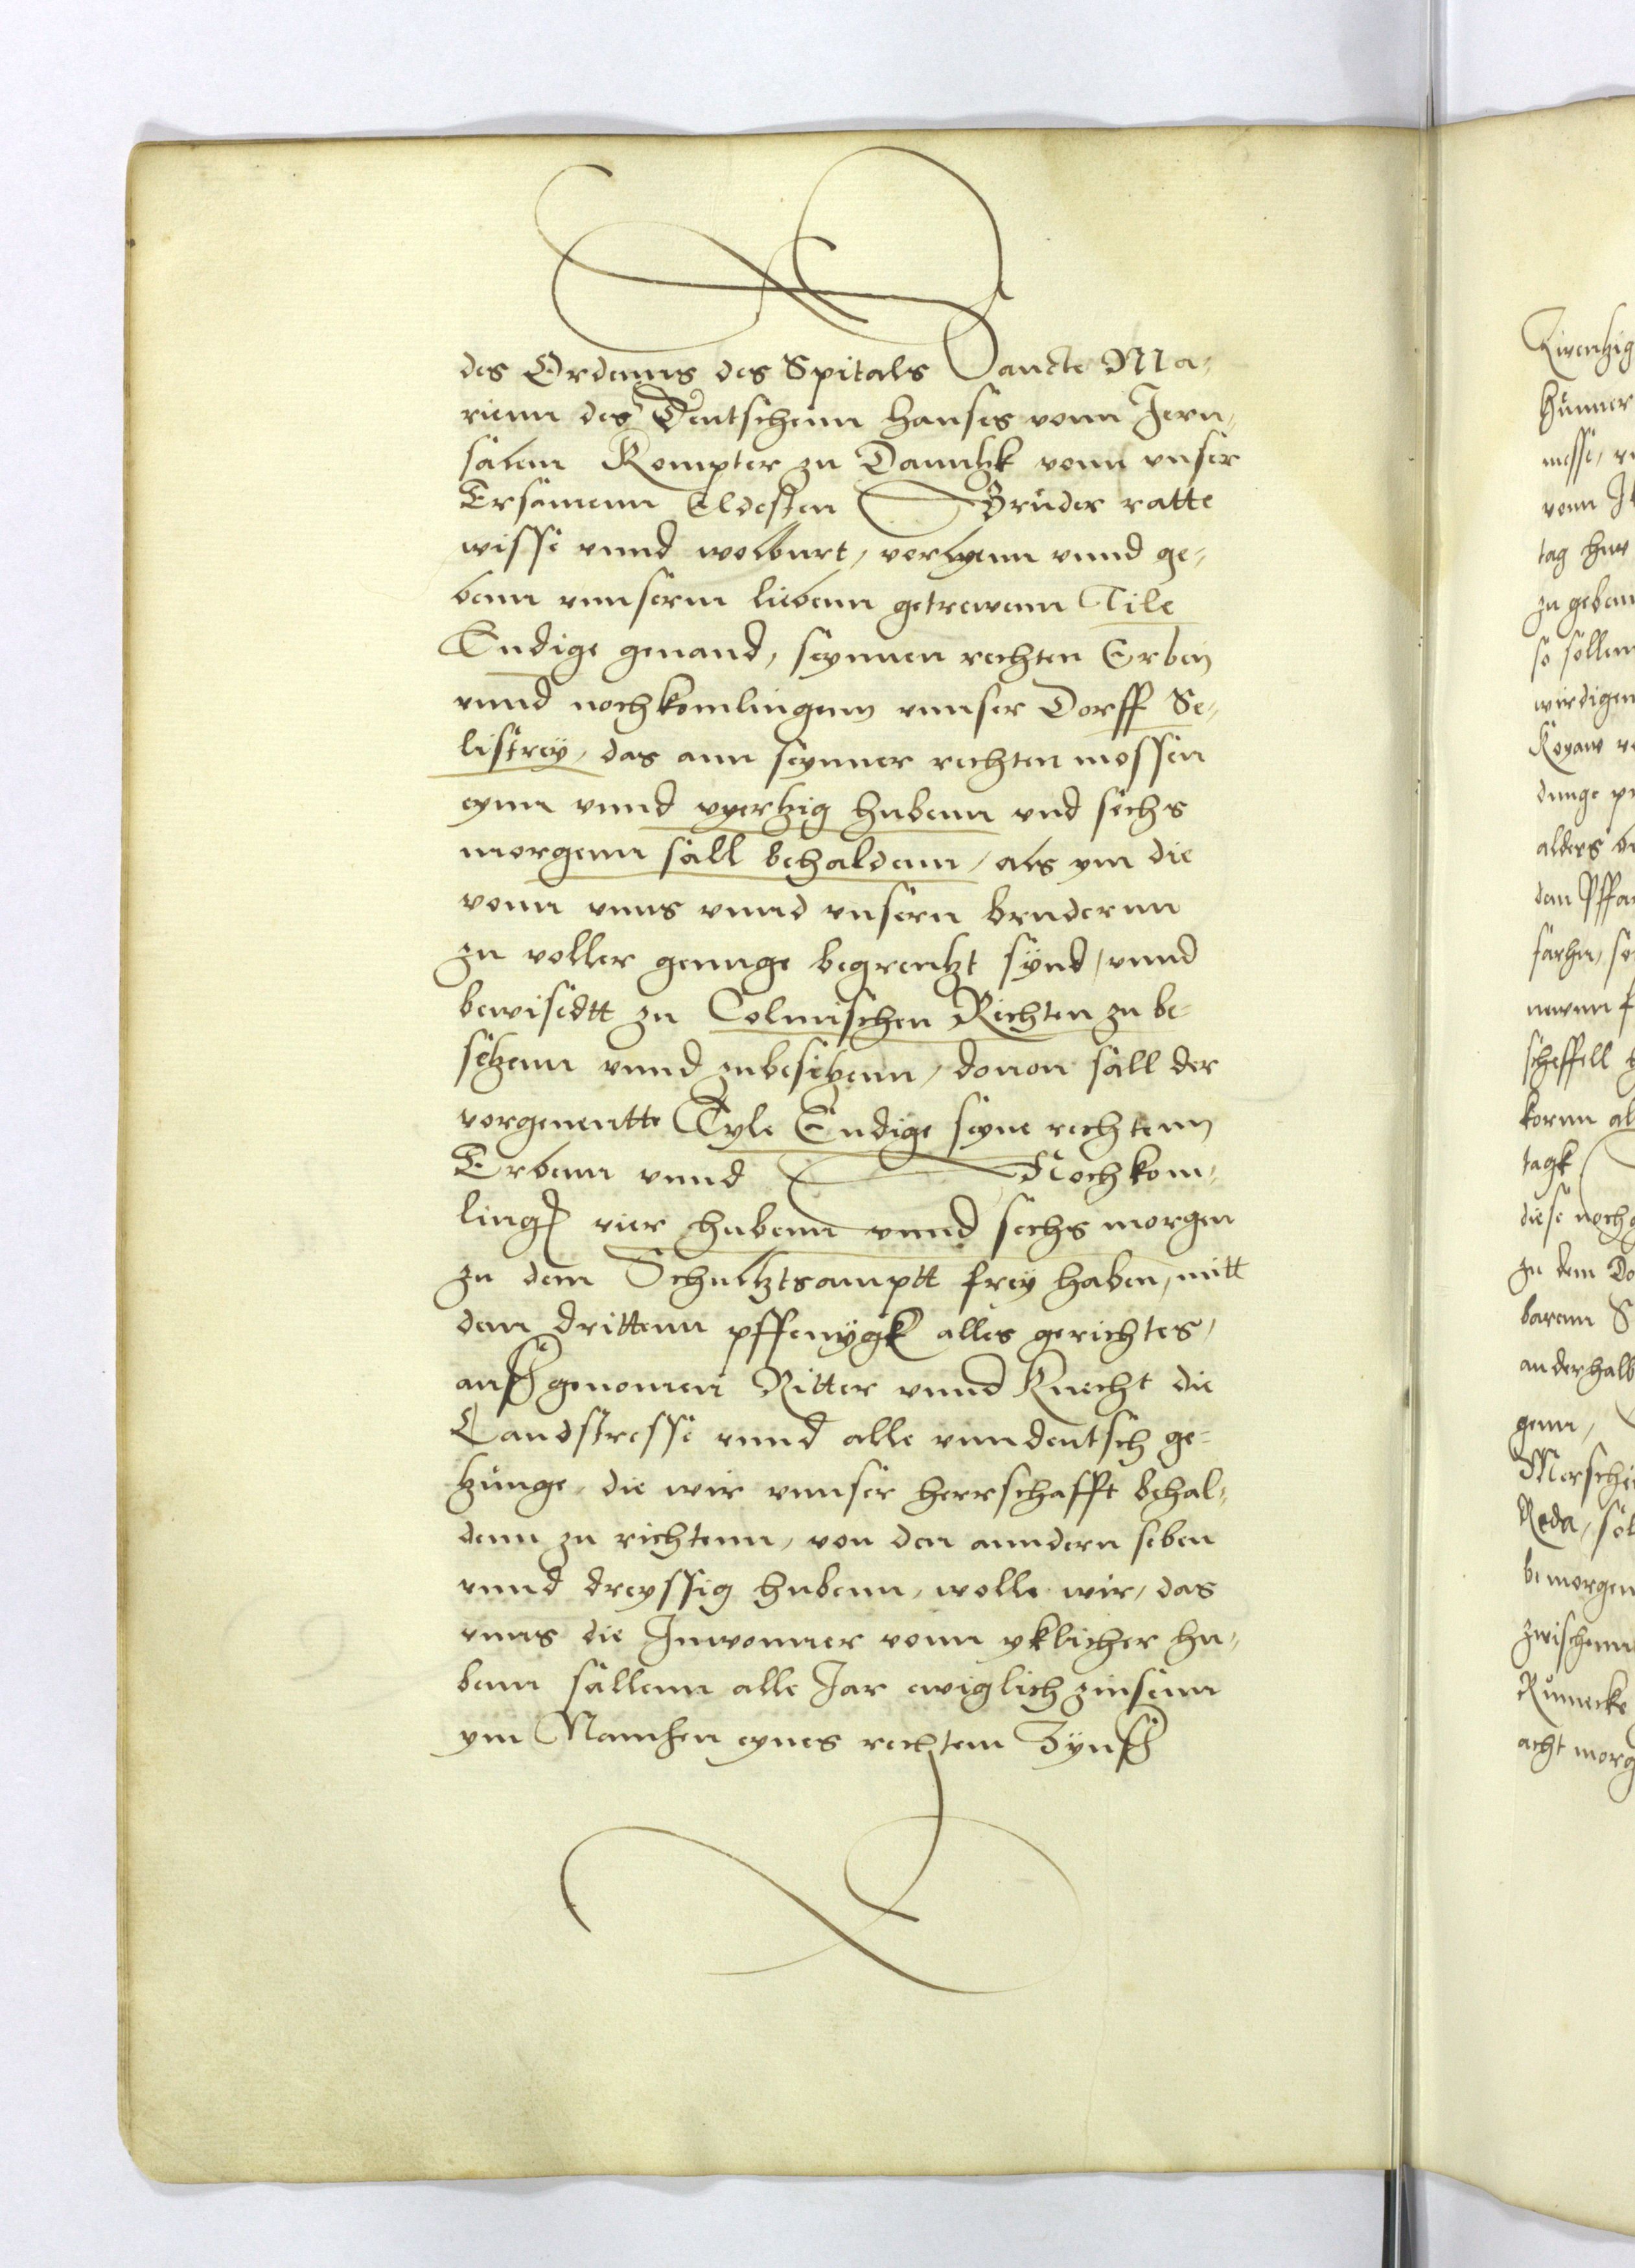 des Ordenns des Spitals Sancte Ma-
rienn des Deutschenn hauses vonn Jeru-
salem Kompter zu Danntzk vonn vnser
Ersamenn Eldesten Brüder ratte
wisse vnnd wolburt, vorlyenn vnnd ge-
benn vnnserm liebenn getrewenn Tile
Endige genand, seynnen rechten Erben
vnnd nochkomlingenn vnnser Dorff Se-
listrey, das ann seynner rechten mossen
eynn vnnd vyertzig hubenn vnd sechs
morgenn sall behaldenn, als ym die
vonn vnns vnnd vnsern brudernn
zu voller genuge begrentzt synd, vnnd
bewisedtt zu Colmischen Rechten zu be-
setzenn vnnd zubesitzenn, douon sall der
vorgenentte Tyle Endige seyne rechtenn
Erbenn vnnd Nochkom-
ling vier hubenn vnnd sechs morgen
zu dem Schultztsamptt frey haben, mitt
dem drittenn pffenygk alles gerichtes,
ausgenomen Ritter vnnd Knecht die
Landstresse vnnd alle vnndeutsch ge-
tzunge, die wir vnnser herrschafft behal-
denn zu richtenn, von den anndern seben
vnnd dreyssig hubenn, wolle wir, das
vnns die Innwonner vonn yklicher hu-
benn sallenn alle Jar ewiglich zinsenn
ym Namhen eynes rechtem Zyns
hunner
messe,
tag
zu geben
so sollenn
wirdigen
dunge
alders
scheffell
kornn
tagk
diese noch
zu dem
anderhalb
genn,
Reda,
morgen
zwischenn
acht morg